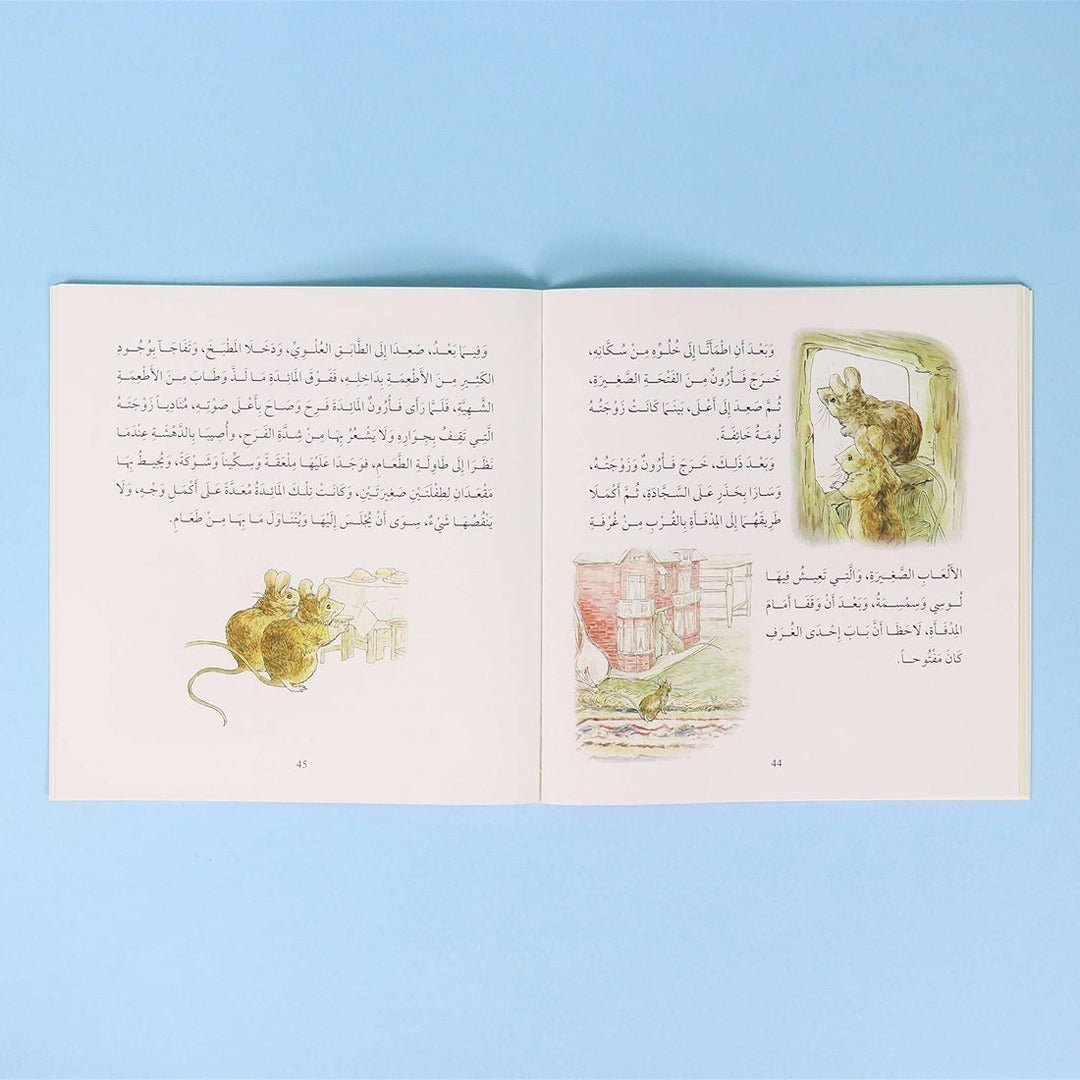 وَبَعْدَ أَنِ اطْمَأَنَّا إِلَى خُلُوِّهِ مِنْ سُكَّانِهِ،
خَرَجَ فَأْرُونُ مِنَ الْفَتْحَةِ الصَّغِيرَةِ،
ثُمَّ صَعِدَ إِلَى أَعْلَى، بَيْنَمَا كَانَتْ زَوْجَتُهُ
لُومَةُ خَائِفَةً.
وَبَعْدَ ذَلِكَ، خَرَجَ فَأْرُونُ وَزَوْجَتُهُ،
وَسَارَا بِحَذَرٍ عَلَى السَّجَّادَةِ، ثُمَّ أَكْمَلَا
طَرِيقَهُمَا إِلَى المِدْفَأَةِ بِالقُرْبِ مِنْ غُرْفَةِ
الأَلْعَابِ الصَّغِيرَةِ، وَالَّتِي تَعِيشُ فِيهَا
لُوسِي وَسِمْسِمَةُ، وَبَعْدَ أَنْ وَقَفَا أَمَامَ
المِدْفَأَةِ، لَاحَظَا أَنَّ بَابَ إِحْدَى الغُرَفِ
كَانَ مَفْتُوحاً.
44
وَفِيمَا بَعْدُ، صَعِدَا إِلَى الطَّابَقِ العُلْوِيِّ، وَدَخَلَا المَطْبَخَ، وَتَفَاجَآ بِوُجُودِ
الكَثِيرِ مِنَ الأَطْعِمَةِ بِدَاخِلِهِ، فَفَوْقَ المَائِدَةِ مَا لَذَّ وَطَابَ مِنَ الأَطْعِمَةِ
الشَّهِيَّةِ، فَلَمَّا رَأَى فَأْرُونُ المَائِدَةَ فَرِحَ وَصَاحَ بِأَعْلَى صَوْتِهِ، مُنَادِياً زَوْجَتَهُ
الَّتِي تَقِفُ بِجِوَارِهِ وَلَا يَشْعُرُ بِهَا مِنْ شِدَّةِ الفَرَحِ، وَأُصِيبَا بِالدَّهْشَةِ عِنْدَمَا
نَظَرَا إِلَى طَاوِلَةِ الطَّعَامِ، فَوَجَدَا عَلَيْهَا مِلْعَقَةً وَسِكِّيناً وَشَوْكَةً، وَيُحِيطُ بِهَا
مَقْعَدَانِ لِطِفْلَتَيْنِ صَغِيرَتَيْنِ، وَكَانَتْ تِلْكَ المَائِدَةُ مُعَدَّةً عَلَى أَكْمَلِ وَجْهٍ، وَلَا
يَنْقُصُهَا شَيْءٌ، سِوَى أَنْ يُجْلَسَ إِلَيْهَا وَيُتَنَاوَلَ مَا بِهَا مِنْ طَعَامٍ.
45